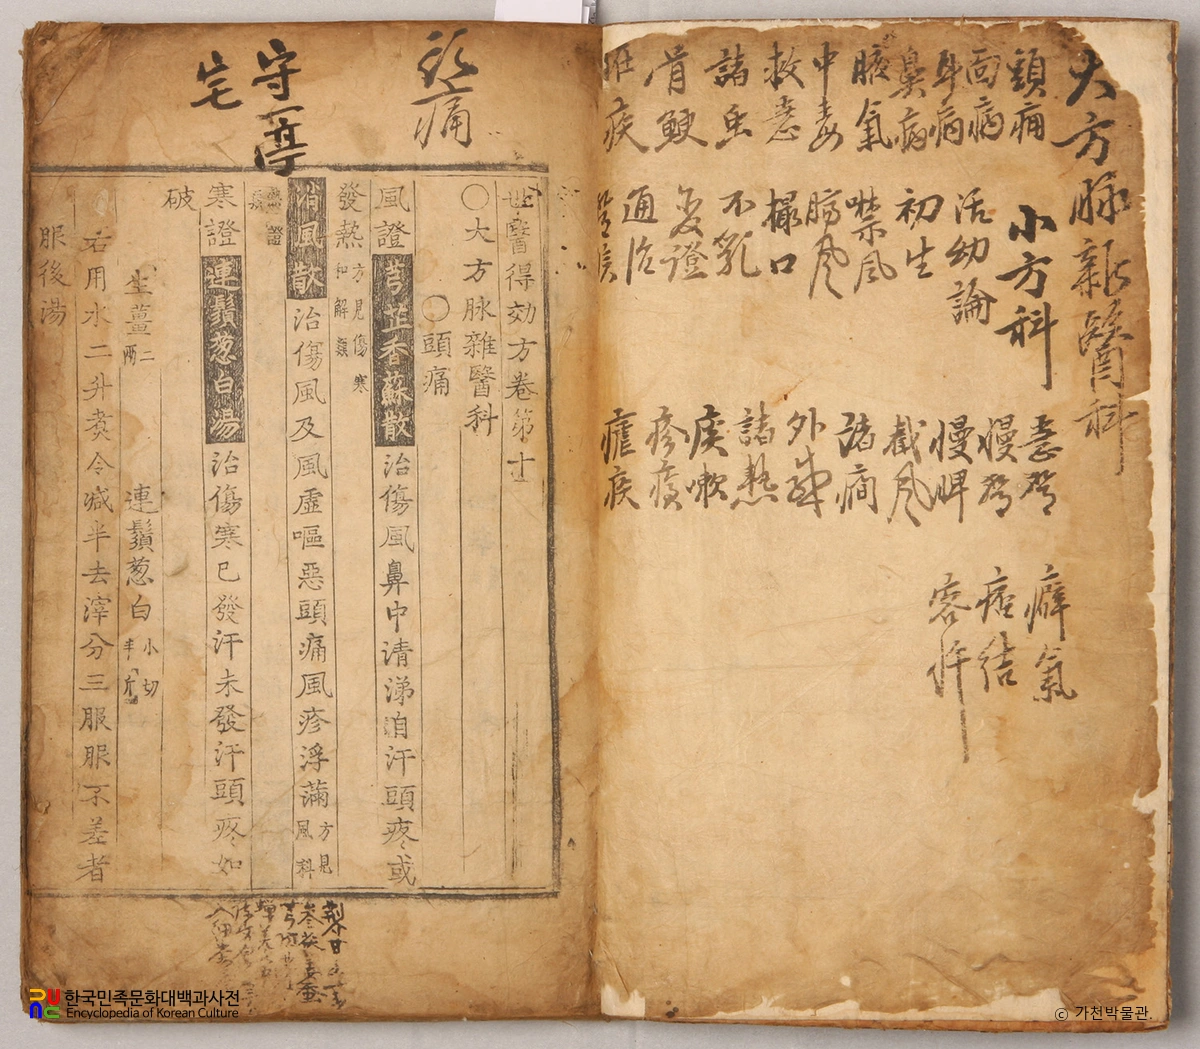 大方脉雜醫科
頭痛
面病
耳病
鼻病
腋氣
中毒
救急
諸虫
骨鯁
疾
小方科
活幼論
初生
噤風
臍風
撮口
不乳
變證
通治
急驚
慢驚
慢脾
截風
諸癎
外
諸熱
痰嗽
疹
瘧疾
癖氣
疳結
客忤
頭痛
守一亭
宅
世醫得効方卷第十
○大方脉雜醫科
○頭痛
風證 芎芷香蘇散 治傷風鼻中清涕自汗頭疼或
發熱 方見傷寒和解類
消風散 治傷風及風虛嘔惡頭痛風疹浮滿 方見風科
寒證 連鬚葱白湯 治傷寒已發汗未發汗頭疼如
破
生薑 二兩 連鬚葱白 小切半斤
右用水二升煮令减半去滓分三服服不差者
服後湯
한국민족문화대백과사전
Encyclopedia of Korean Culture
© 가천박물관.